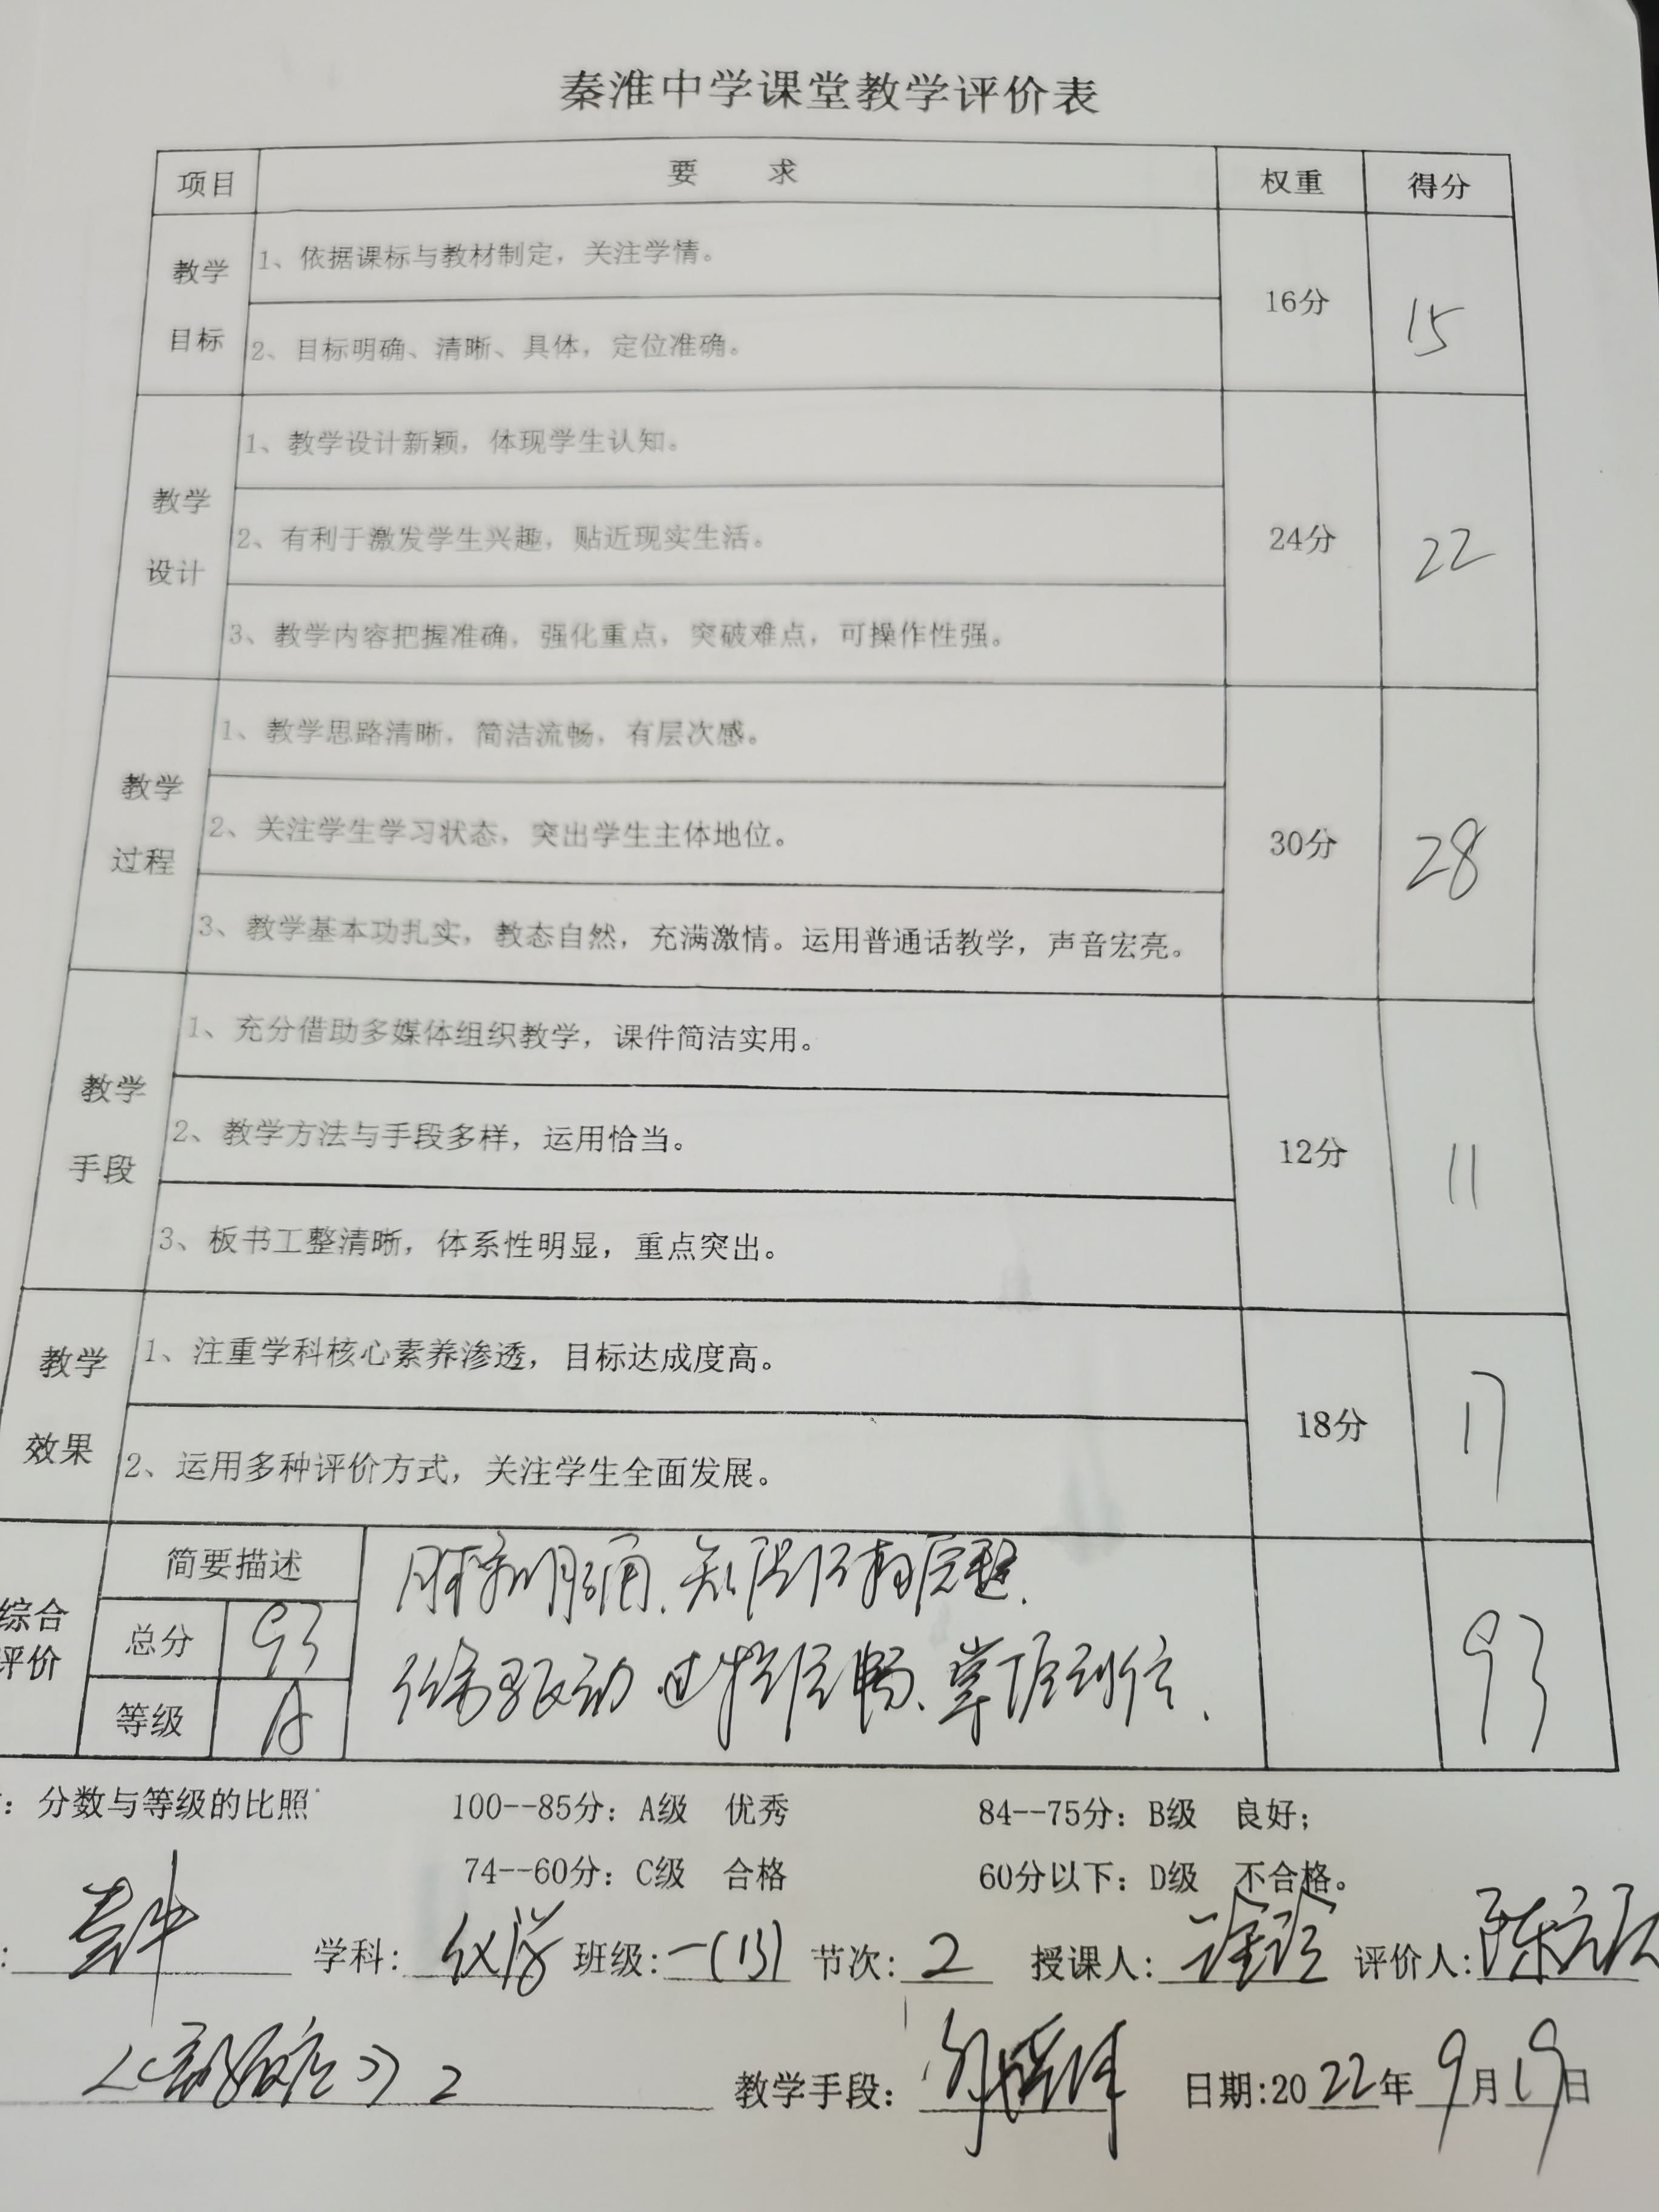 秦淮中学课堂教学评价表
项目 要 求 权重 得分
教学目标 1、依据课标与教材制定，关注学情。 16分 15
2、目标明确、清晰、具体，定位准确。
教学设计 1、教学设计新颖，体现学生认知。 24分 22
2、有利于激发学生兴趣，贴近现实生活。
3、教学内容把握准确，强化重点，突破难点，可操作性强。
教学过程 1、教学思路清晰，简洁流畅，有层次感。 30分 28
2、关注学生学习状态，突出学生主体地位。
3、教学基本功扎实，教态自然，充满激情。运用普通话教学，声音宏亮。
教学手段 1、充分借助多媒体组织教学，课件简洁实用。 12分 11
2、教学方法与手段多样，运用恰当。
3、板书工整清晰，体系性明显，重点突出。
教学效果 1、注重学科核心素养渗透，目标达成度高。 18分 17
2、运用多种评价方式，关注学生全面发展。
综合评价 简要描述 93
总分 93
等级 A
任务驱动 过程流畅、掌握到位.
：分数与等级的比照 100--85分：A级 优秀 84--75分：B级 良好；
74--60分：C级 合格 60分以下：D级 不合格。
学科: 化学 班级: 一(13) 节次: 2 授课人: 评价人: 陈
2 教学手段： 日期:2022年9月19日